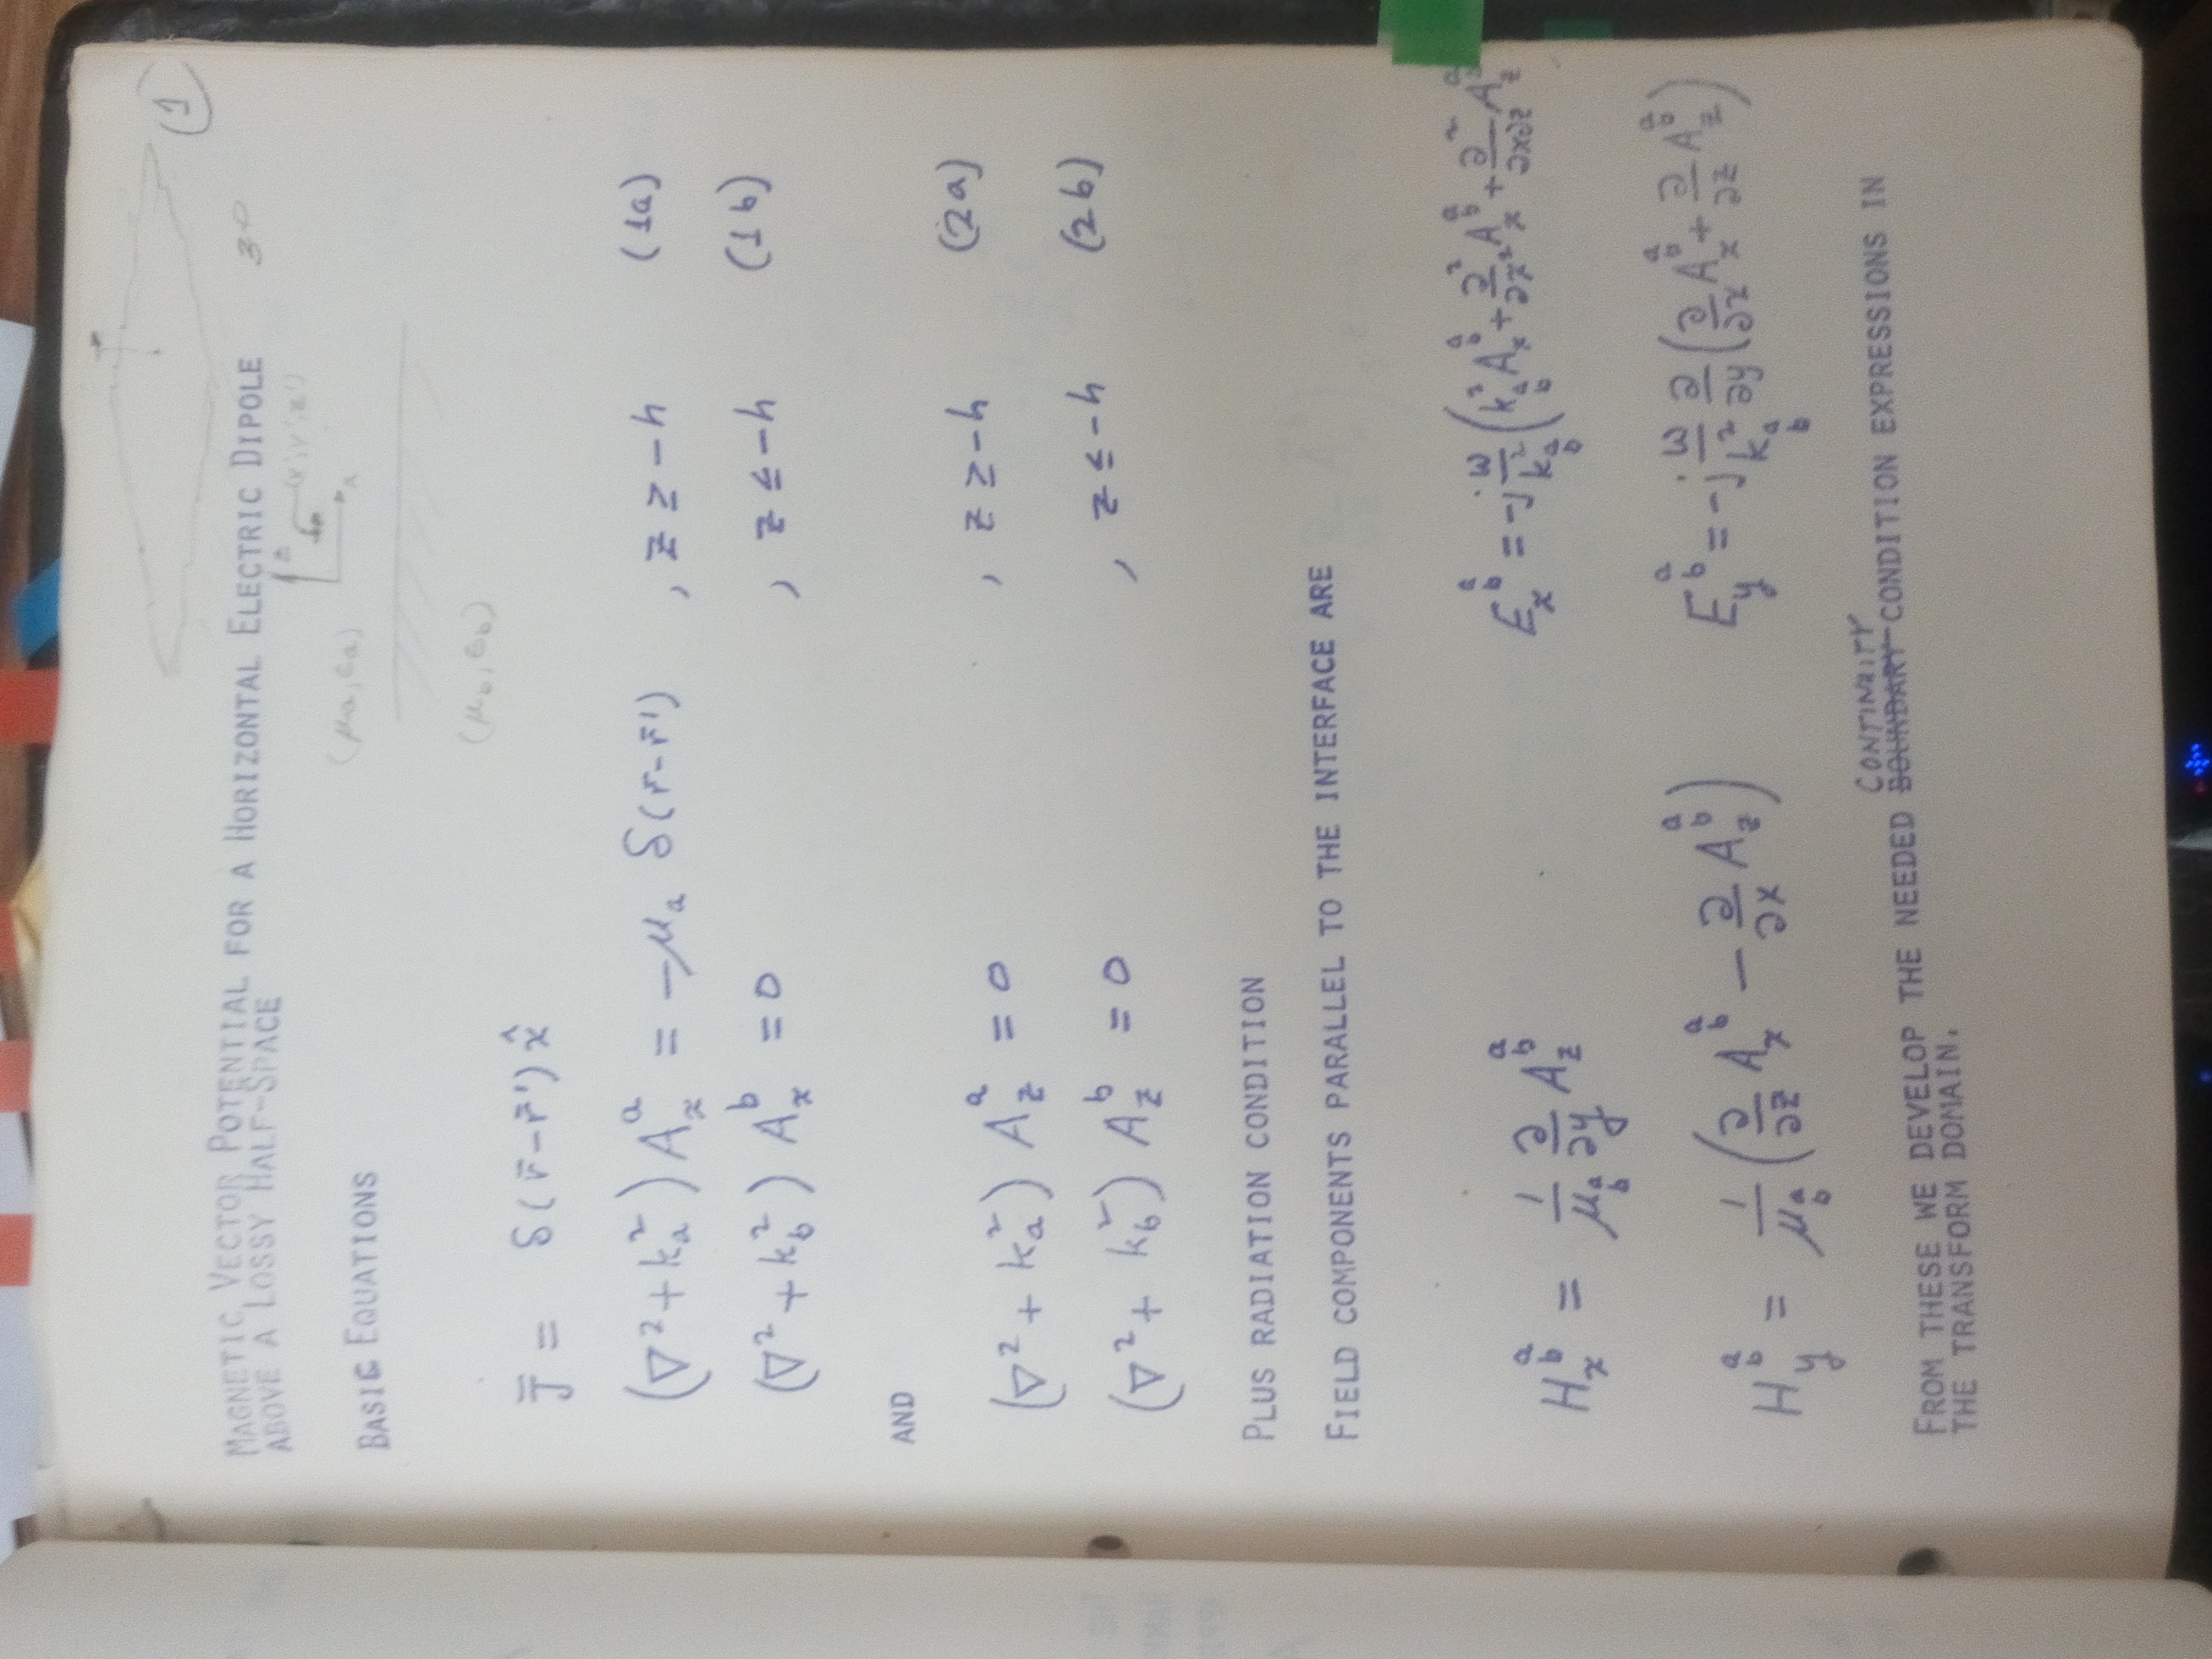 (1)
MAGNETIC VECTOR POTENTIAL FOR A HORIZONTAL ELECTRIC DIPOLE
ABOVE A LOSSY HALF-SPACE
30
z
x
(μa, ϵa)
(μb, ϵb)
BASIC EQUATIONS
J̄ = δ(r̄-r̄')x̂
(∇² + k_a²) A_x^a = -μ_a δ(r̄-r̄') , z ≥ -h (1a)
(∇² + k_b²) A_x^b = 0 , z ≤ -h (1b)
AND
(∇² + k_a²) A_z^a = 0 , z ≥ -h (2a)
(∇² + k_b²) A_z^b = 0 , z ≤ -h (2b)
PLUS RADIATION CONDITION
FIELD COMPONENTS PARALLEL TO THE INTERFACE ARE
H_x^{a b} = 1/μ_{a b} ∂/∂y A_z^{a b} E_x^{a b} = -j ω/k²_{a b} (k²_{a b} A_x^{a b} + ∂²/∂x² A_x^{a b} + ∂²/∂x∂z A_z^{a b}
H_y^{a b} = 1/μ_{a b} (∂/∂z A_x^{a b} - ∂/∂x A_z^{a b}) E_y^{a b} = -j ω/k²_{a b} ∂/∂y (∂/∂x A_x^{a b} + ∂/∂z A_z^{a b})
CONTINUITY
FROM THESE WE DEVELOP THE NEEDED BOUNDARY CONDITION EXPRESSIONS IN
THE TRANSFORM DOMAIN.